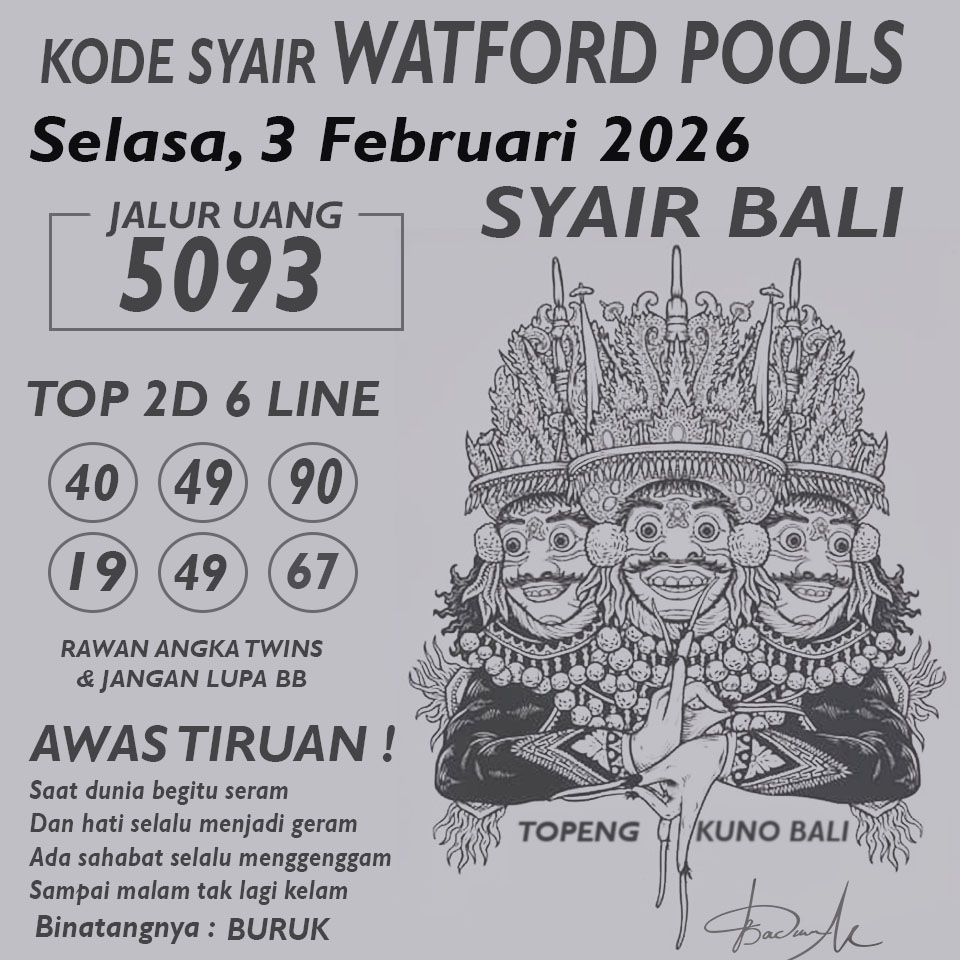 KODE SYAIR WATFORD POOLS
Selasa, 3 Februari 2026
SYAIR BALI
JALUR UANG
5093
TOP 2D 6 LINE
40 49 90
19 49 67
RAWAN ANGKA TWINS
& JANGAN LUPA BB
AWAS TIRUAN !
Saat dunia begitu seram
Dan hati selalu menjadi geram
Ada sahabat selalu menggenggam
Sampai malam tak lagi kelam
Binatangnya : BURUK
TOPENG KUNO BALI